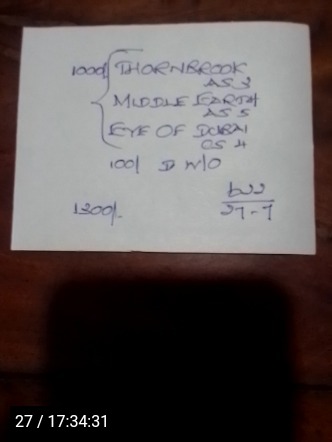 1000/ { THORNBROOK
AS 3
MIDDLE EARTH
AS 5
EYE OF DUBAI
CS 4
100/ D W/O
1200/-
b22
27-7
27 / 17:34:31